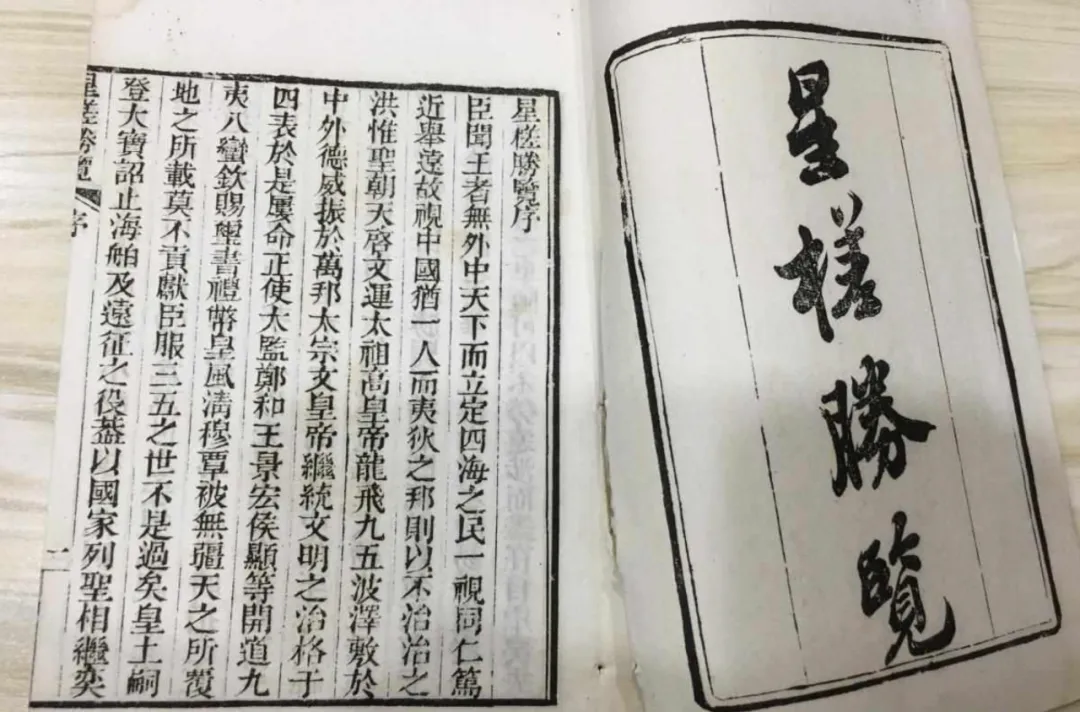 星槎勝覽
星槎勝覽序
臣聞王者無外中天下而立定四海之民一視同仁篤
近舉遠故視中國猶一人而夷狄之邦則以不治治之
洪惟聖朝天啓文運太祖高皇帝龍飛九五波澤敷於
中外德威振於萬邦太宗文皇帝繼統文明之治格于
四表於是屢命正使太監鄭和王景宏侯顯等開道九
夷八蠻欽賜璽書禮幣皇風淸穆覃被無疆天之所覆
地之所載莫不貢獻臣服三五之世不是過矣皇土嗣
登大寶詔止海舶及遠征之役葢以國家列聖相繼奕
星槎勝覽 序